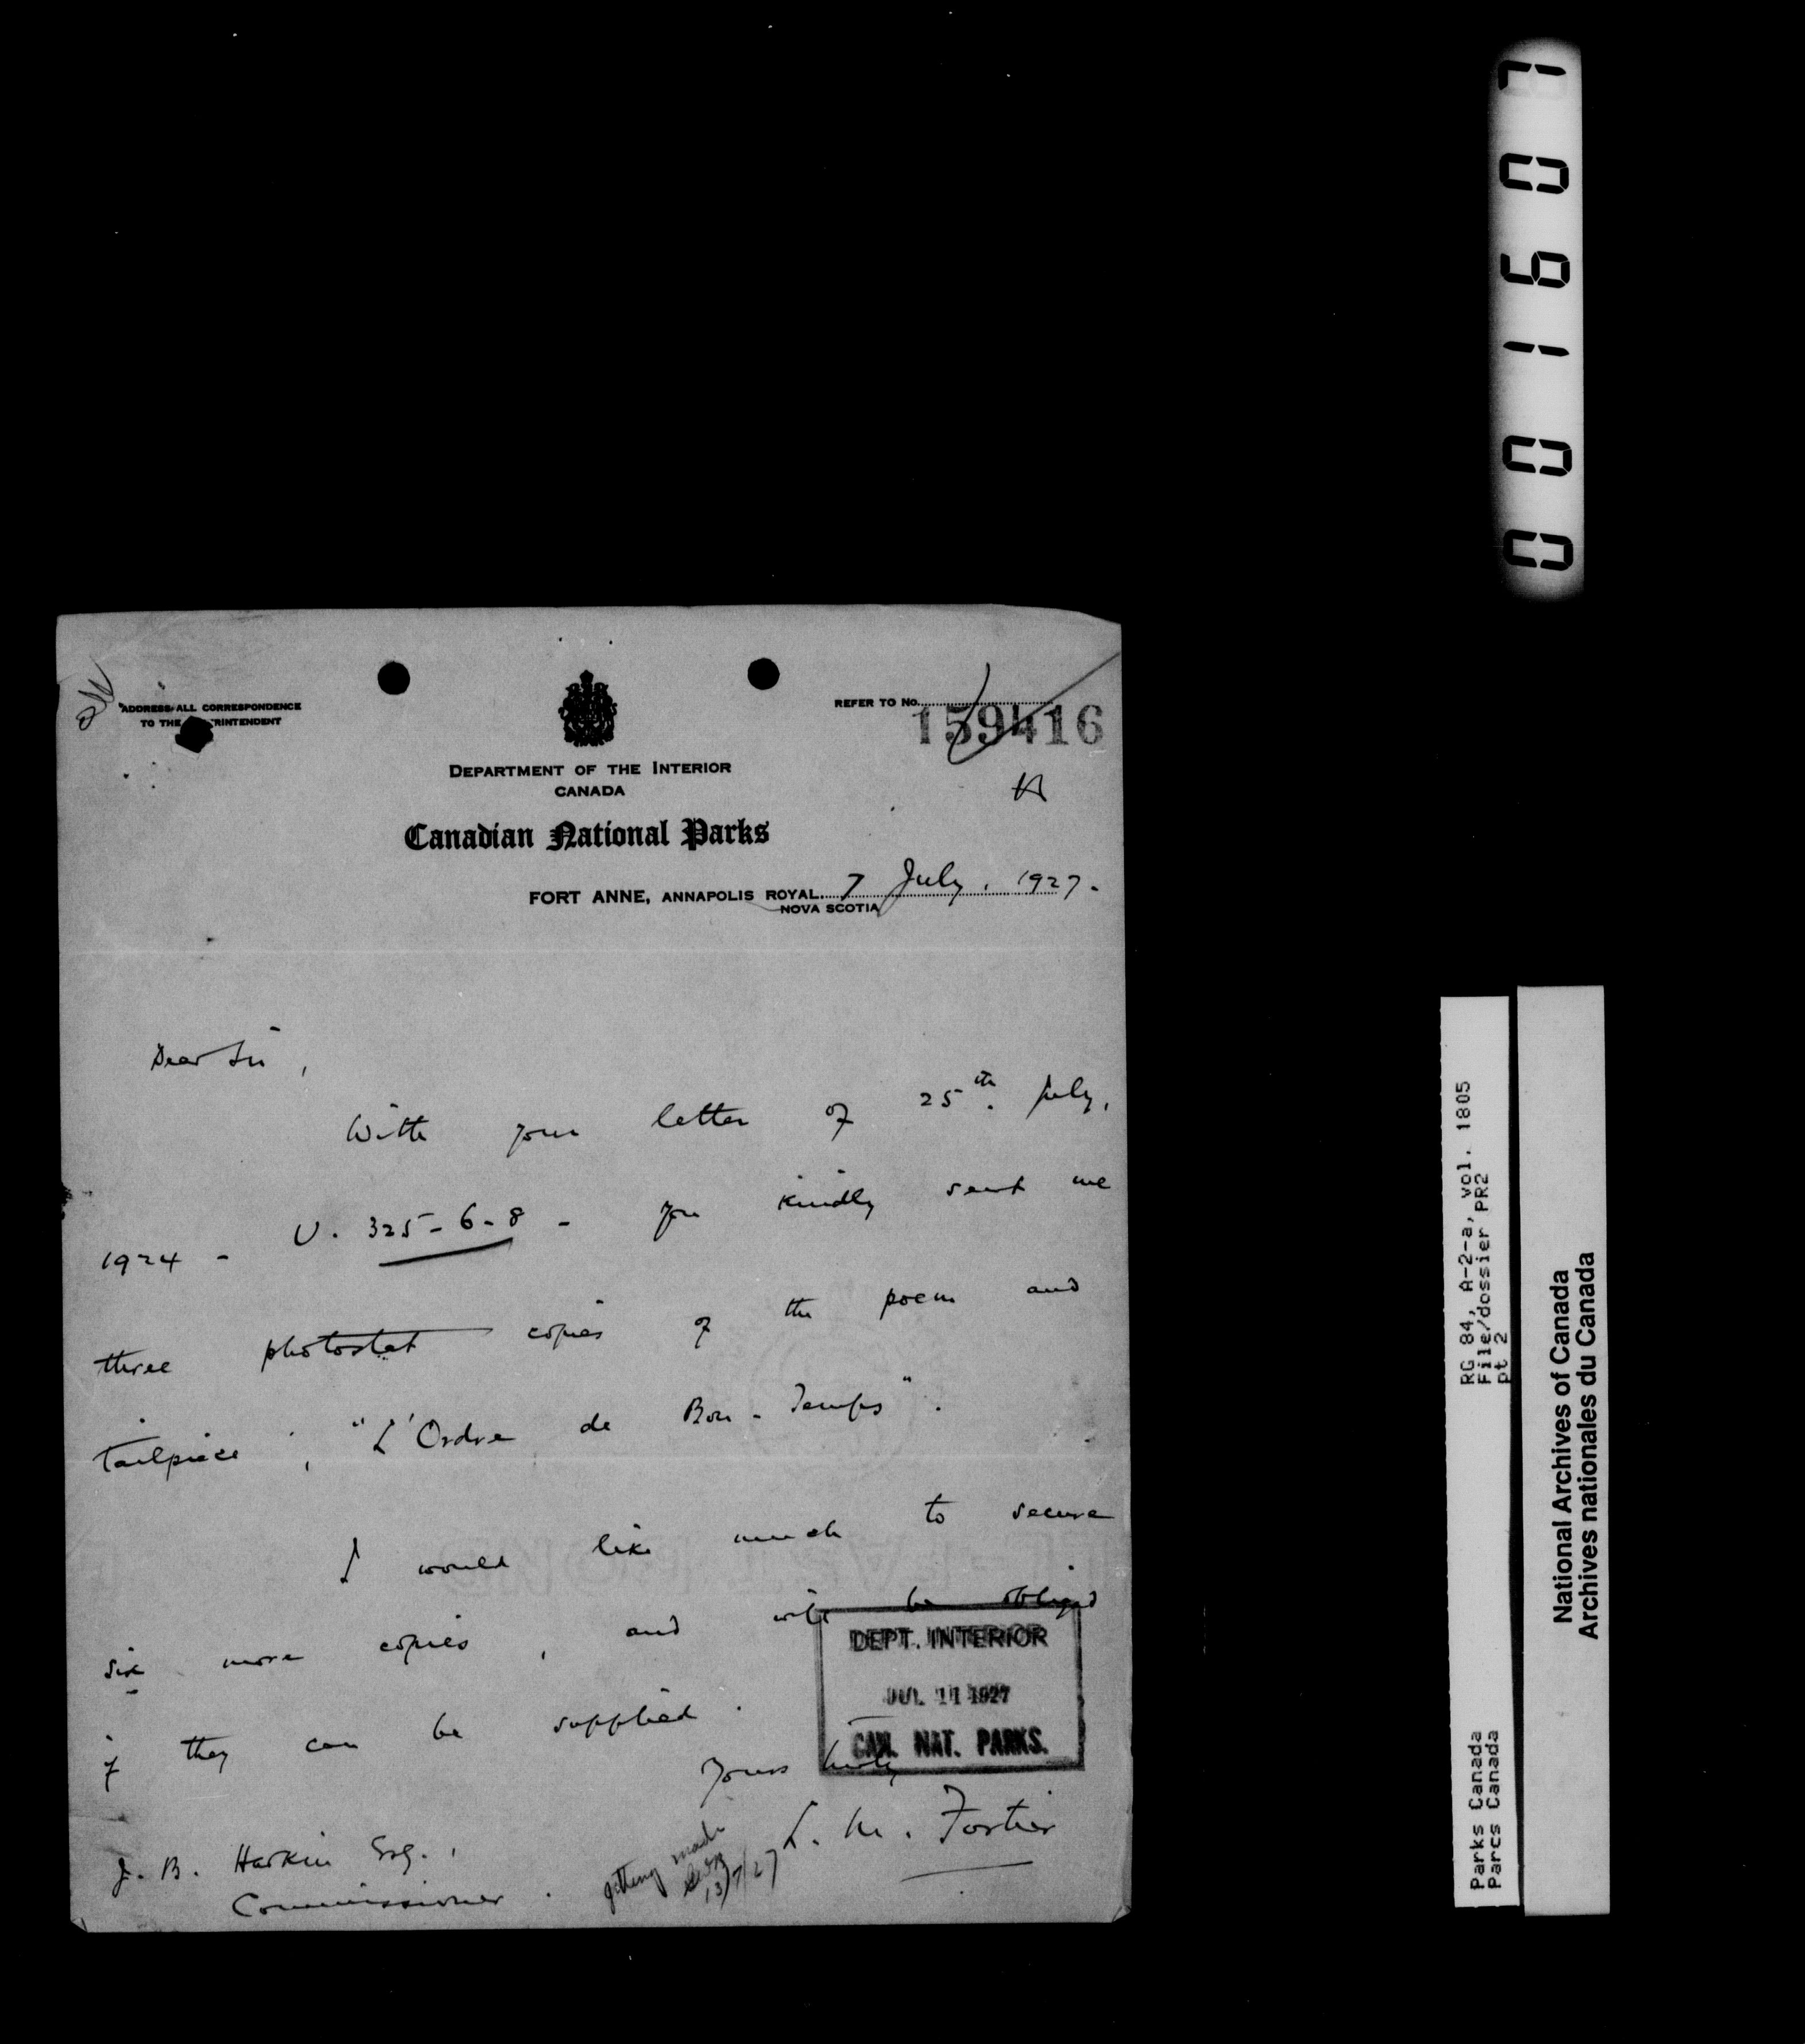 ADDRESS ALL CORRESPONDENCE
TO THE RINTENDENT
REFER TO No.
159416
DEPARTMENT OF THE INTERIOR
CANADA
Canadian National Parks
FORT ANNE, ANNAPOLIS ROYAL 7 July, 1927.
NOVA SCOTIA
Dear Sir,
With your letter of 25th. July,
1924 - U. 325-6-8 - you kindly sent me
three photostat copies of the poem and
tailpiece, "L'Ordre de Bon-Temps".
I would like much to secure
six more copies, and will be obliged
if they can be supplied.
Yours truly
L. M. Fortier
J. B. Harkin Esq.,
Commissioner.
getting made
13/7/27
DEPT. INTERIOR
JUL 11 1927
CAN. NAT. PARKS.
001607
RG 84, A-2-a, vol. 1805
File/dossier PR2
pt 2
Parks Canada
Parcs Canada
National Archives of Canada
Archives nationales du Canada